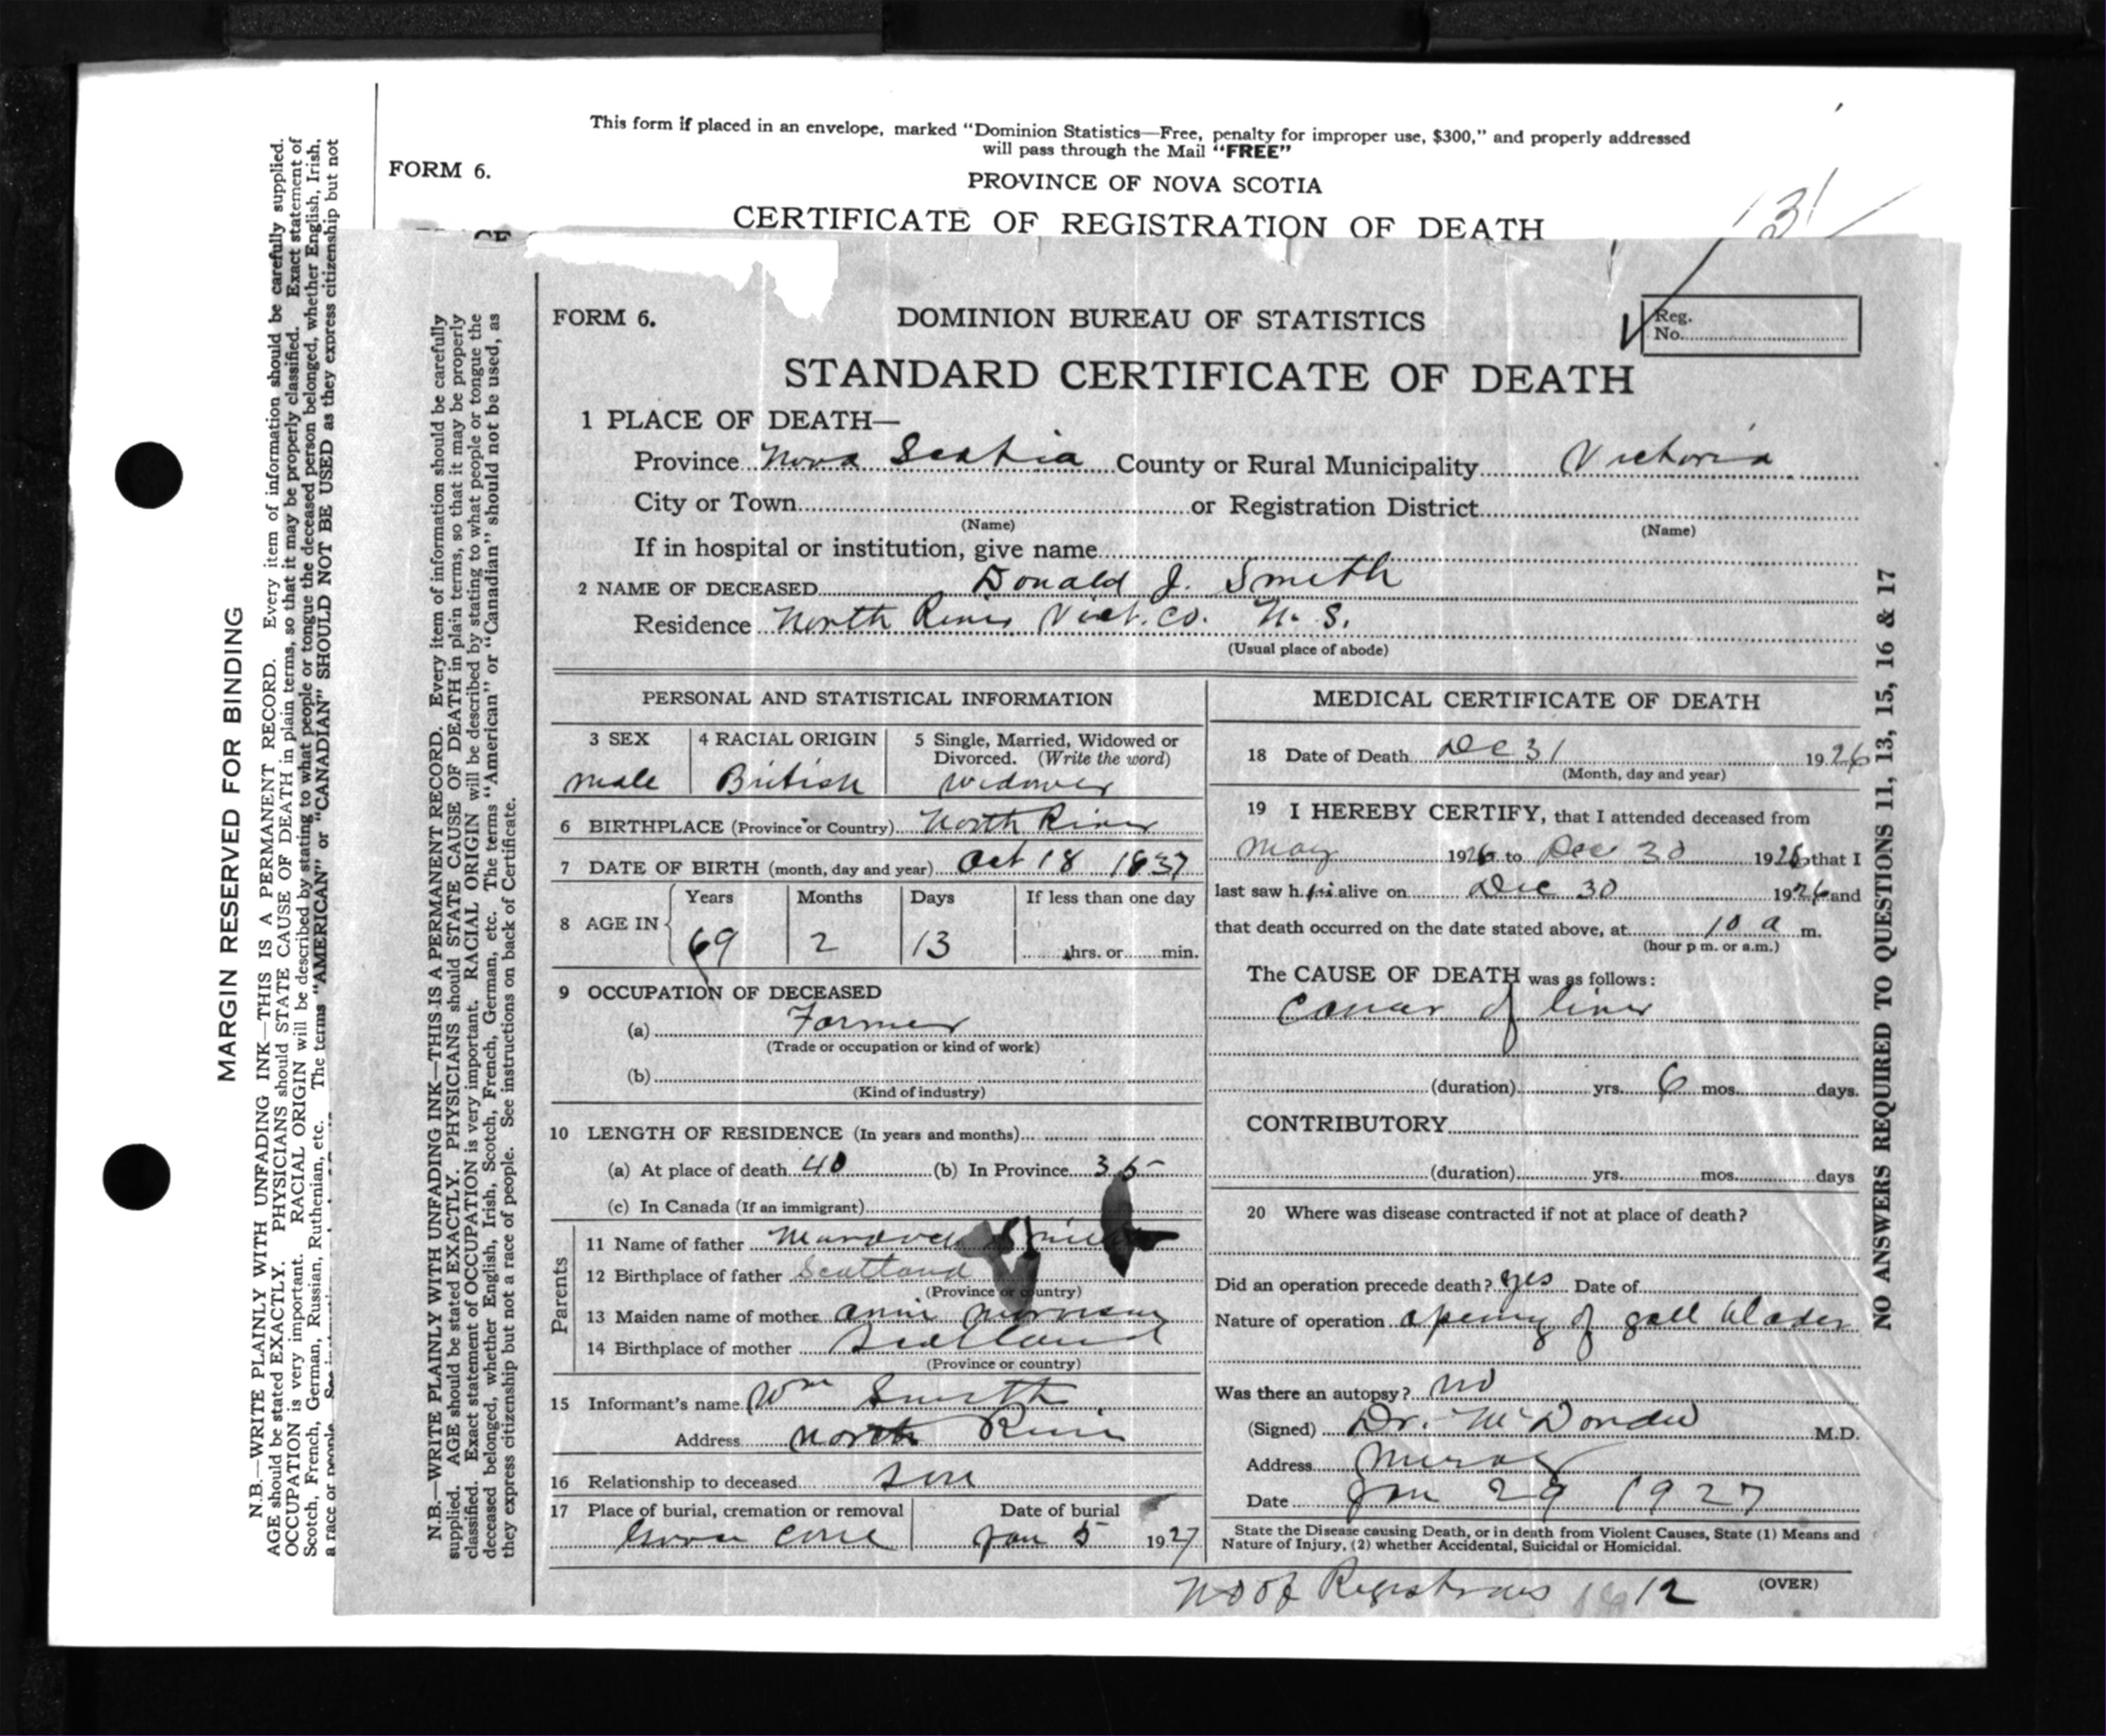 This form if placed in an envelope, marked “Dominion Statistics—Free, penalty for improper use, $300,” and properly addressed
will pass through the Mail “FREE”
FORM 6.
PROVINCE OF NOVA SCOTIA
CERTIFICATE OF REGISTRATION OF DEATH
131
MARGIN RESERVED FOR BINDING
N.B.—WRITE PLAINLY WITH UNFADING INK—THIS IS A PERMANENT RECORD. Every item of information should be carefully supplied.
AGE should be stated EXACTLY. PHYSICIANS should STATE CAUSE OF DEATH in plain terms, so that it may be properly classified. Exact statement of
OCCUPATION is very important. RACIAL ORIGIN will be described by stating to what people or tongue the deceased person belonged, whether English, Irish,
Scotch, French, German, Russian, Ruthenian, etc. The terms “AMERICAN” or “CANADIAN” SHOULD NOT BE USED as they express citizenship but not
a race or people.
N.B.—WRITE PLAINLY WITH UNFADING INK—THIS IS A PERMANENT RECORD. Every item of information should be carefully
supplied. AGE should be stated EXACTLY. PHYSICIANS should STATE CAUSE OF DEATH in plain terms, so that it may be properly
classified. Exact statement of OCCUPATION is very important. RACIAL ORIGIN will be described by stating to what people or tongue the
deceased belonged, whether English, Irish, Scotch, French, German, etc. The terms “American” or “Canadian” should not be used, as
they express citizenship but not a race of people. See instructions on back of Certificate.
FORM 6.
DOMINION BUREAU OF STATISTICS
Reg.
No.
STANDARD CERTIFICATE OF DEATH
1 PLACE OF DEATH—
Province Nova Scotia County or Rural Municipality Victoria
City or Town or Registration District
(Name) (Name)
If in hospital or institution, give name
2 NAME OF DECEASED Donald J. Smith
Residence North River Vict. Co. N. S.
(Usual place of abode)
PERSONAL AND STATISTICAL INFORMATION
3 SEX 4 RACIAL ORIGIN 5 Single, Married, Widowed or
Divorced. (Write the word)
Male British Widower
6 BIRTHPLACE (Province or Country) North River
7 DATE OF BIRTH (month, day and year) Oct 18 1837
Years Months Days If less than one day
8 AGE IN 69 2 13 hrs. or min.
9 OCCUPATION OF DECEASED
(a) Farmer
(Trade or occupation or kind of work)
(b)
(Kind of industry)
10 LENGTH OF RESIDENCE (In years and months)
(a) At place of death 40 (b) In Province 35
(c) In Canada (If an immigrant)
Parents
11 Name of father Murdoch Smith
12 Birthplace of father Scotland
(Province or country)
13 Maiden name of mother Annie Morrison
14 Birthplace of mother Scotland
(Province or country)
15 Informant's name Wm Smith
Address North River
16 Relationship to deceased Son
17 Place of burial, cremation or removal Date of burial
Cove Jan 5 1927
MEDICAL CERTIFICATE OF DEATH
18 Date of Death Dec 31 1926
(Month, day and year)
19 I HEREBY CERTIFY, that I attended deceased from
May 1926 to Dec 30 1926 that I
last saw him alive on Dec 30 1926 and
that death occurred on the date stated above, at 10 a m.
(hour p m. or a.m.)
The CAUSE OF DEATH was as follows:
Cancer of liver
(duration) yrs. 6 mos. days.
CONTRIBUTORY
(duration) yrs. mos. days
20 Where was disease contracted if not at place of death?
Did an operation precede death? yes Date of
Nature of operation opening of gall blader
Was there an autopsy? no
(Signed) Dr. McDonald M.D.
Address
Date Jan 29 1927
State the Disease causing Death, or in death from Violent Causes, State (1) Means and
Nature of Injury, (2) whether Accidental, Suicidal or Homicidal.
(OVER)
No of Registrars 12
NO ANSWERS REQUIRED TO QUESTIONS 11, 13, 15, 16 & 17